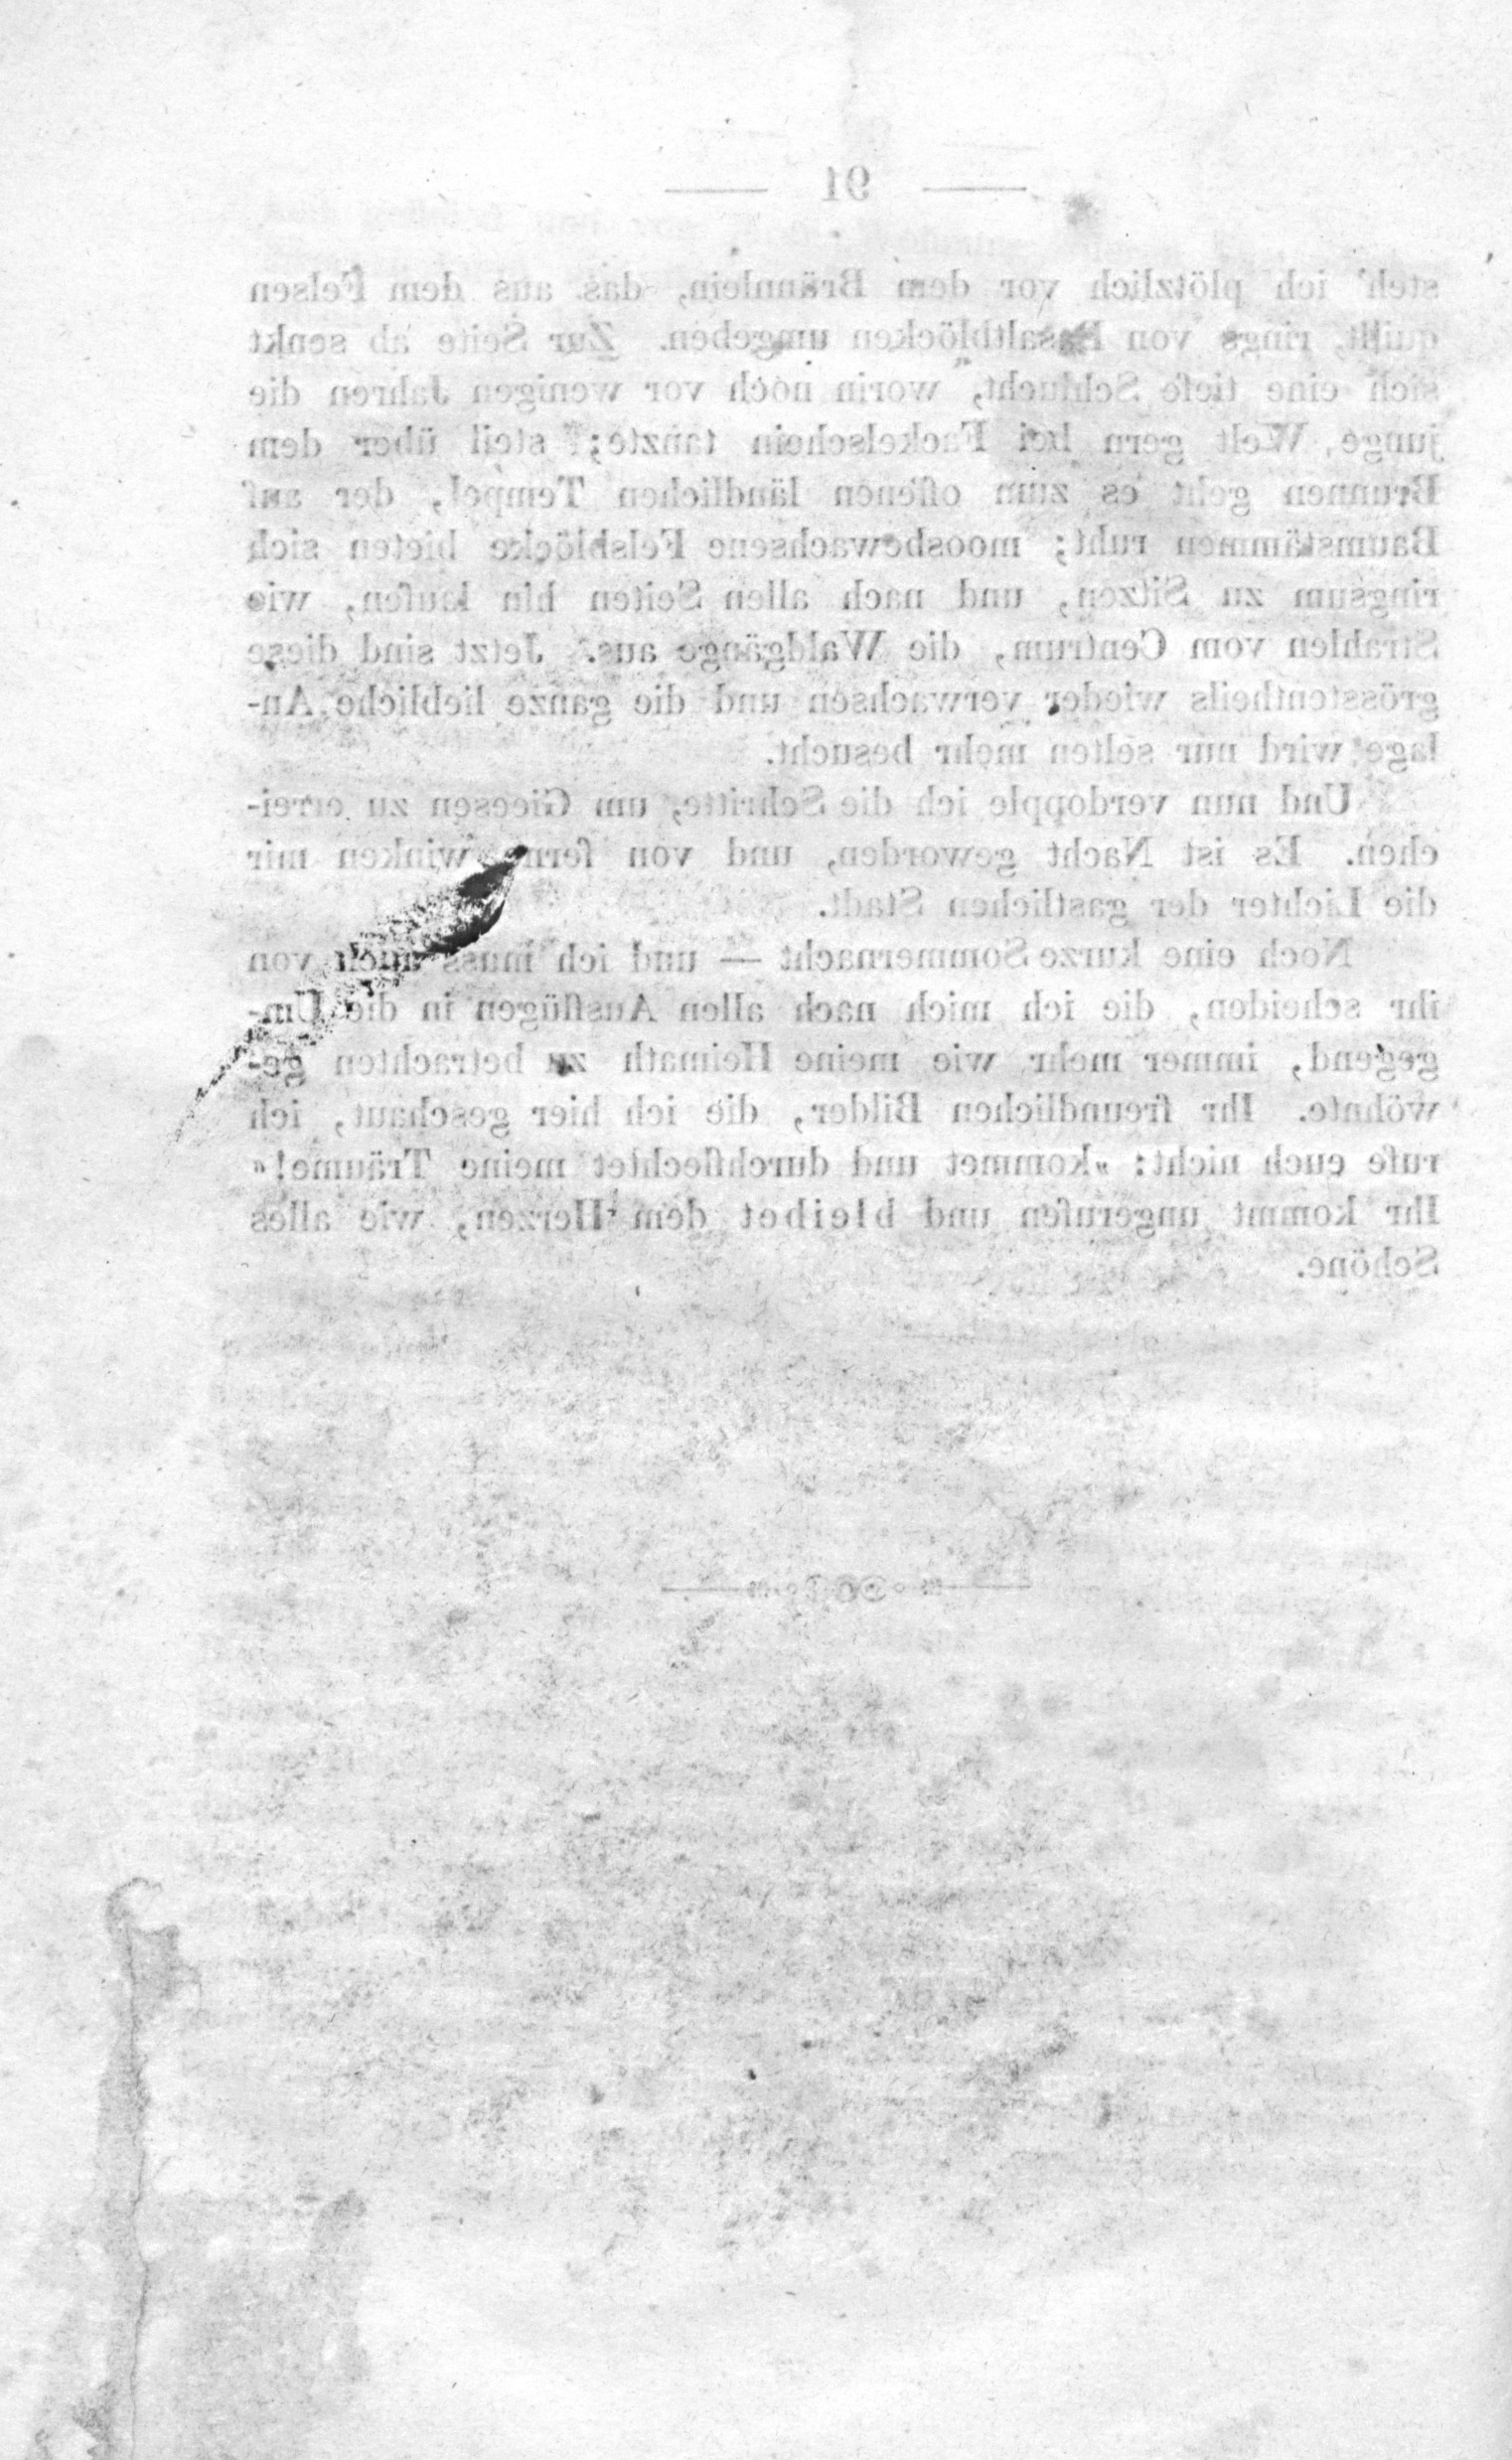 — 91 —
steh' ich plötzlich vor dem Brünnlein, das aus dem Felsen
quillt, rings von Basaltblöcken umgeben. Zur Seite ab senkt
sich eine tiefe Schlucht, worin noch vor wenigen Jahren die
junge Welt gern bei Fackelschein tanzte; steil über dem
Brunnen geht es zum offenen ländlichen Tempel, der auf
Baumstämmen ruht; moosbewachsene Felsblöcke bieten sich
ringsum zu Sitzen, und nach allen Seiten hin laufen, wie
Strahlen vom Centrum, die Waldgänge aus. Jetzt sind diese
grösstentheils wieder verwachsen und die ganze liebliche An-
lage wird nur selten mehr besucht.
Und nun verdopple ich die Schritte, um Giessen zu errei-
chen. Es ist Nacht geworden, und von fern winken mir
die Lichter der gastlichen Stadt.
Noch eine kurze Sommernacht — und ich muss auch von
ihr scheiden, die ich mich nach allen Ausflügen in die Um-
gegend, immer mehr wie meine Heimath zu betrachten ge-
wöhnte. Ihr freundlichen Bilder, die ich hier geschaut, ich
rufe euch nicht: „kommet und durchflechtet meine Träume!“
Ihr kommt ungerufen und bleibet dem Herzen, wie alles
Schöne.